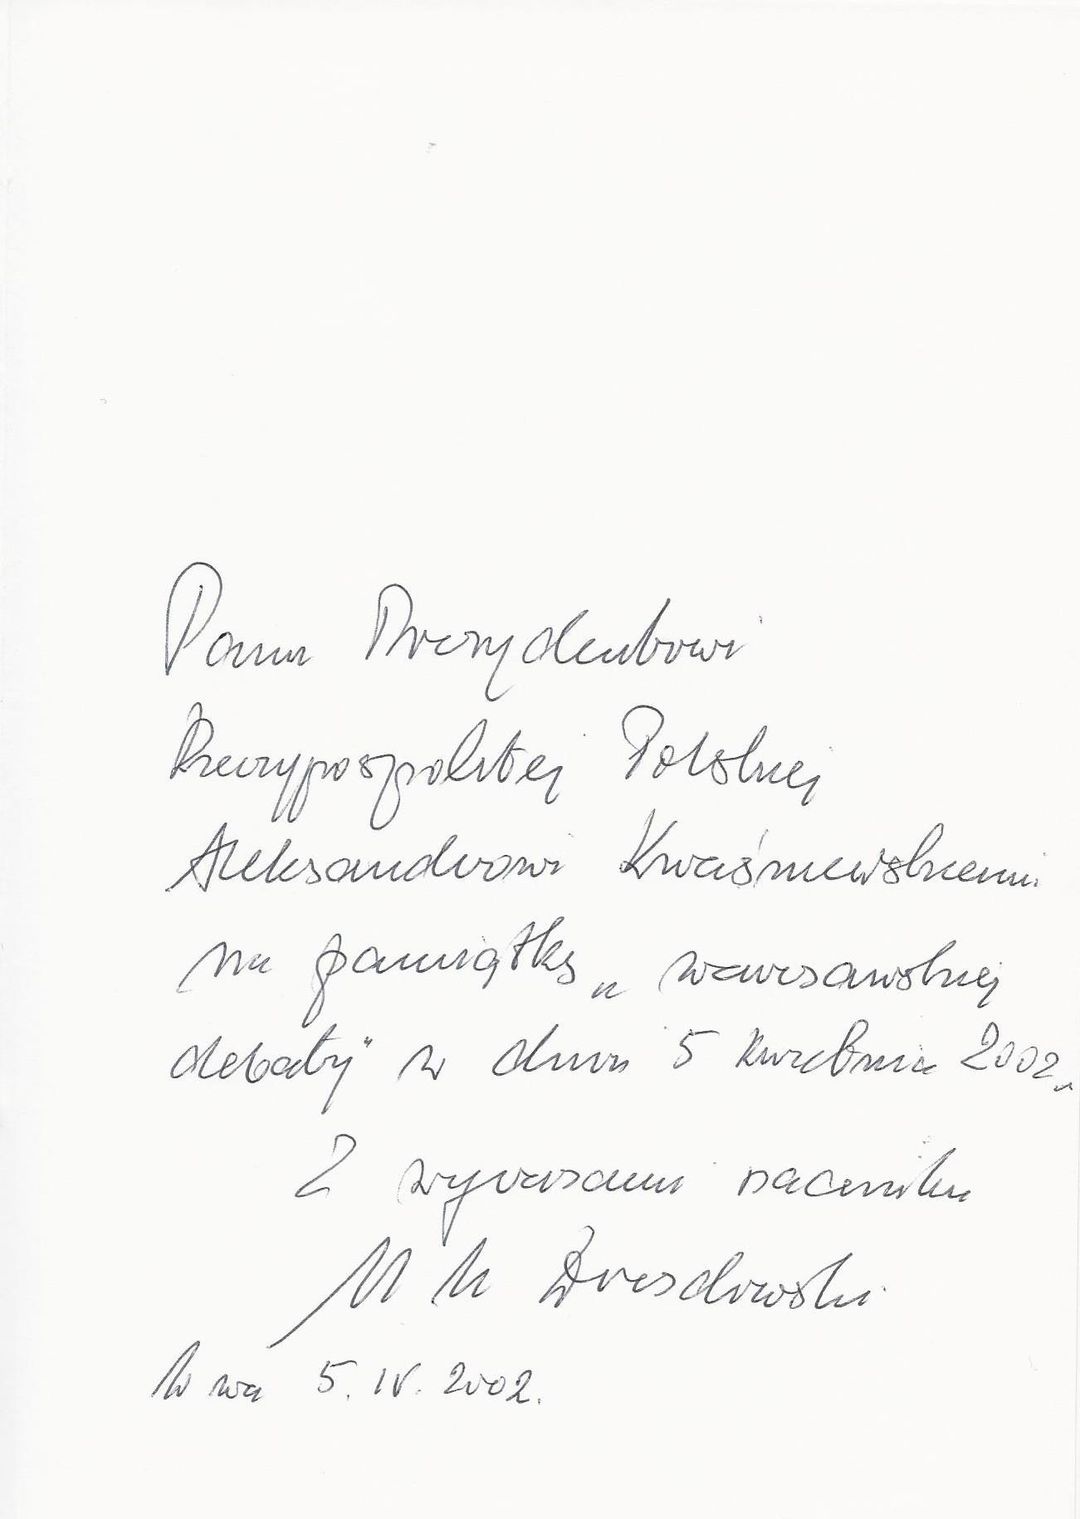 Panu Prezydentowi
Rzeczypospolitej Polskiej
Aleksandrowi Kwaśniewskiemu
na pamiątkę „warszawskiej
debaty" w dniu 5 kwietnia 2002.
Z wyrazami szacunku
M M Drozdowski
W-wa 5. IV. 2002.